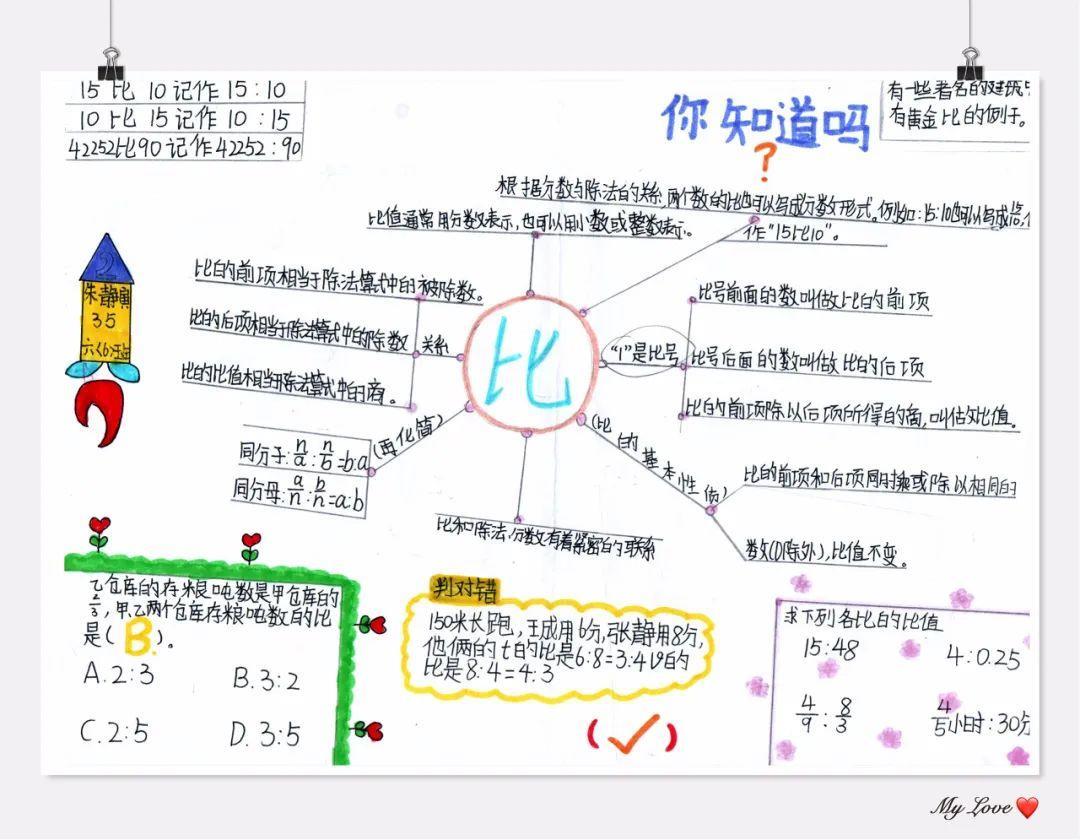 15 比 10 记作 15:10
10 比 15 记作 10:15
42252比90 记作 42252:90
你知道吗
?
有一些著名的建筑中
有黄金比的例子。
根据分数与除法的关系,两个数的比也可以写成分数形式。例如:15:10也可以写成
作"15比10"。
比值通常用分数表示,也可以用小数或整数表示。
2
朱静
35
六(6)班
比的前项相当于除法算式中的被除数。
比的后项相当于除法算式中的除数
关系
比的比值相当于除法算式中的商。
比
":"是比号
比号前面的数叫做比的前项
比号后面的数叫做比的后项
比的前项除以后项所得的商,叫做比值。
(再化简)
同分子:n/a:n/b=b:a
同分母:a/n:b/n=a:b
(比的基本性质)
比的前项和后项同时乘或除以相同的
数(0除外),比值不变。
比和除法,分数有着紧密的联系
乙仓库的存粮吨数是甲仓库的
2/3,甲乙两个仓库存粮吨数的比
是(B.)。
A.2:3
B.3:2
C.2:5
D.3:5
判对错
150米长跑,王成用6分,张静用8分,
他俩的t的比是6:8=3:4 V的
比是8:4=4:3
(✓)
求下列各比的比值
15:48
4:0.25
4/9:8/3
4/5小时:30分
My Love ❤️